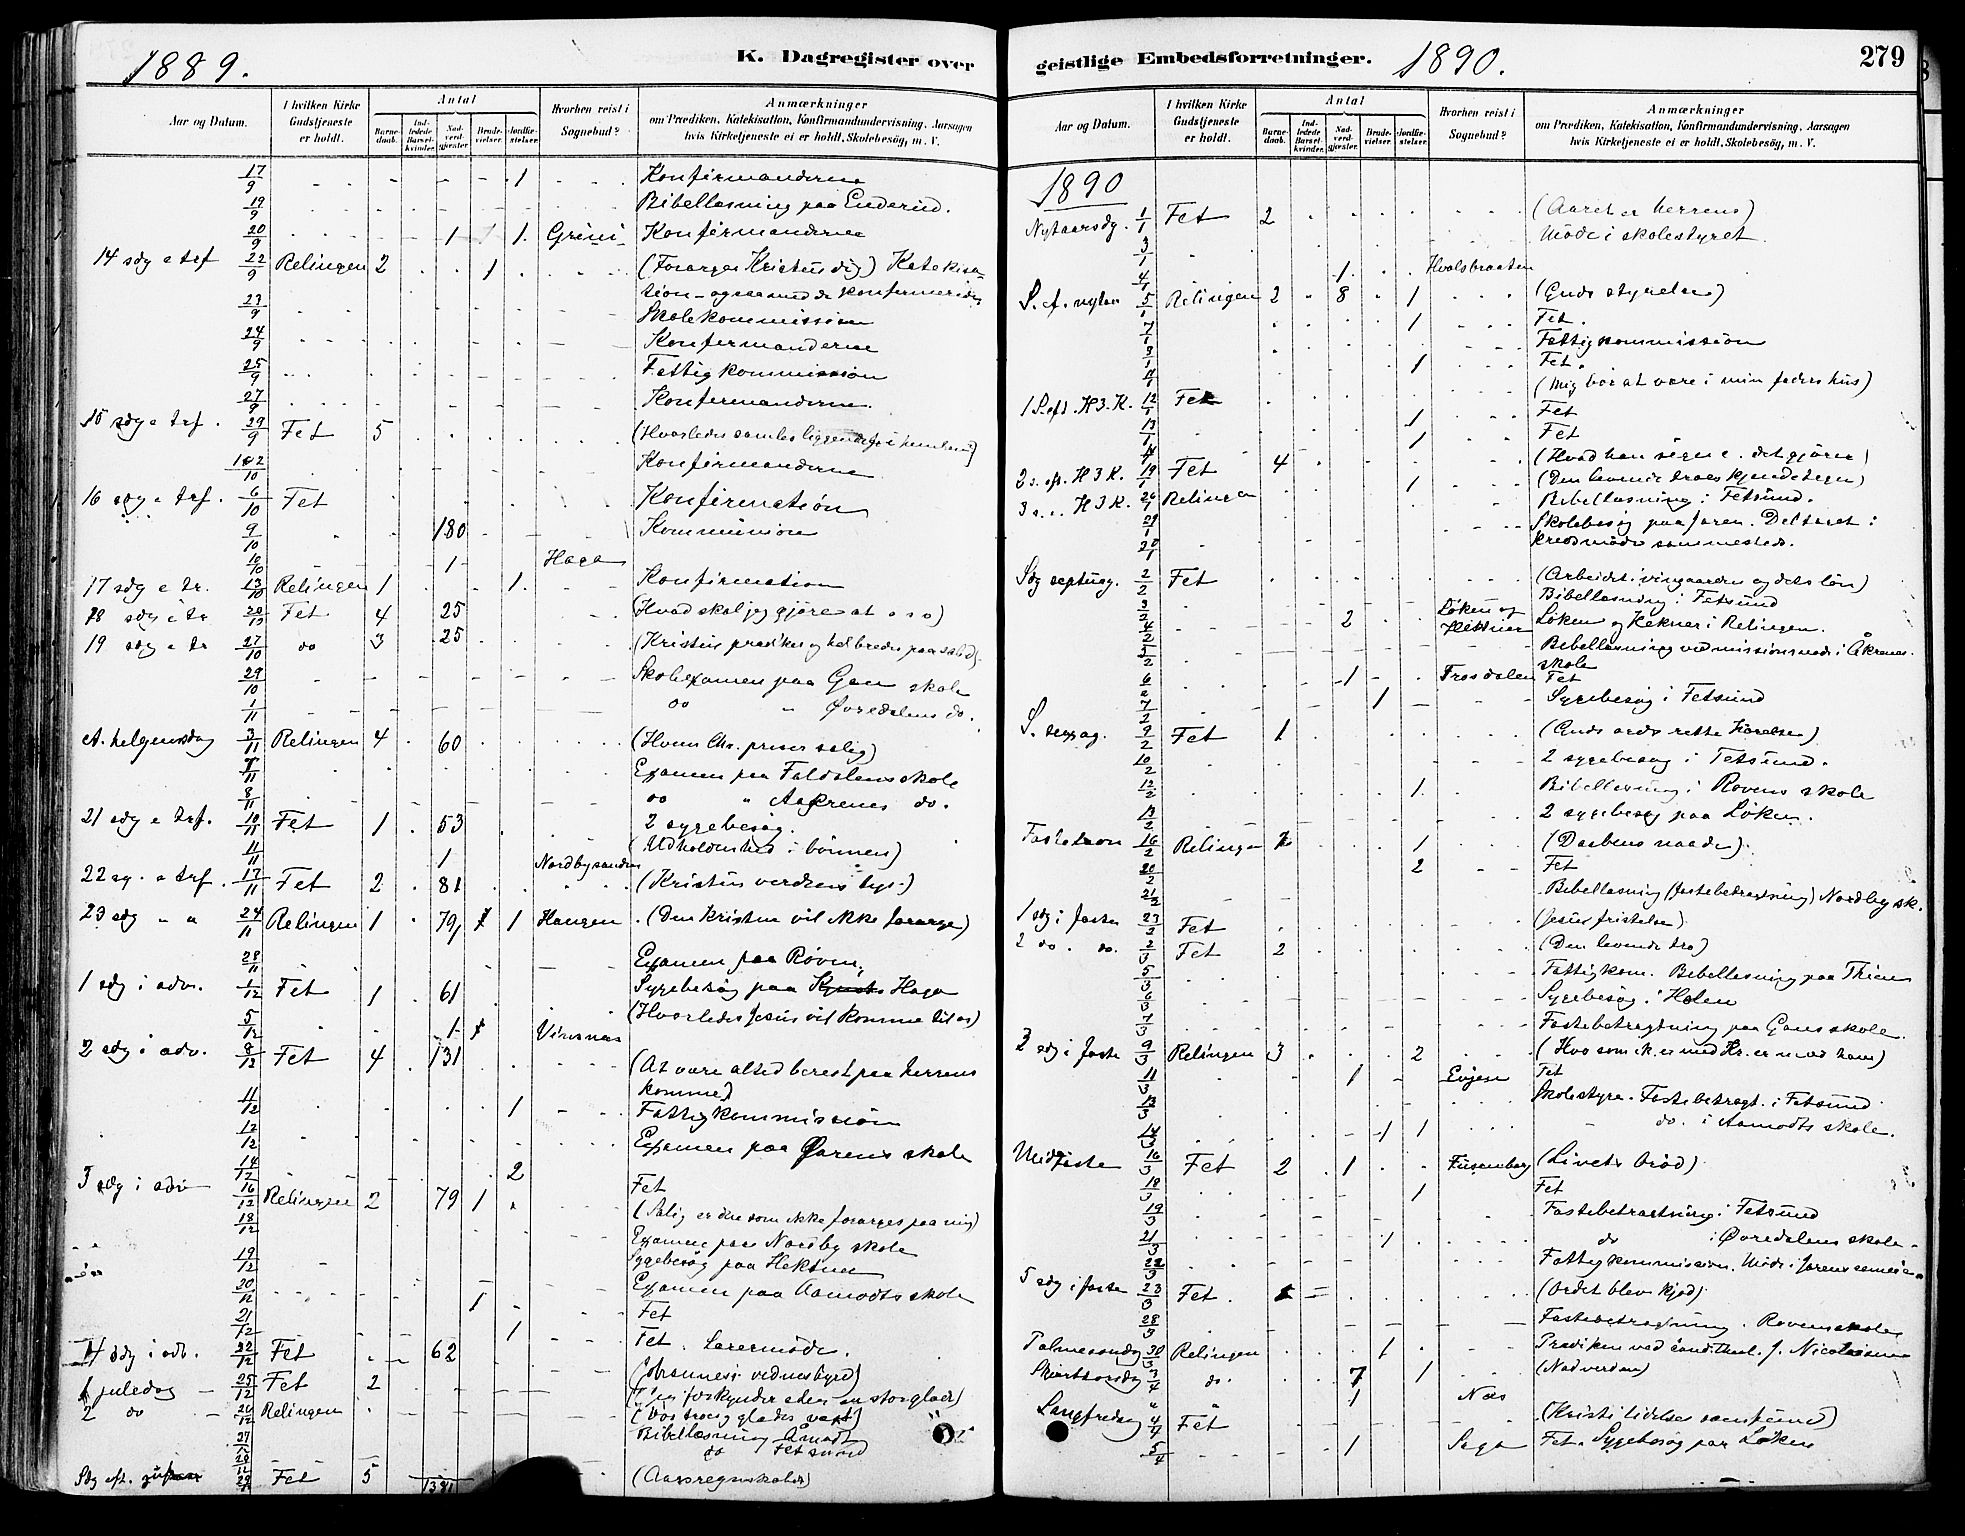 1889.
K. Dagregister over
Aar og Datum.
I hvilken Kirke Gudstjeneste er holdt.
Antal
Barnedaab.
Indledede Barselkvinder.
Nadverdgjester.
Brudevielser.
Jordfæstelser.
Hvorhen reist i Sognebud?
Anmærkninger
om Prædiken, Katekisation, Konfirmandundervisning, Aarsagen
hvis Kirketjeneste ei er holdt, Skolebesög, m. V.
17/9 1 Konfirmanderne
19/9 Bibellæsning paa Enderud.
20/9 1 1. Grini Konfirmanderne
14 sdg e trf 22/9 Relingen 2 1 (Forarger Kristus dig) Katekisa-
tion - ogsaa med de konfirmerede
23/9 Skolekommission
24/9 Konfirmanderne
25/9 Fattigkommission
27/9 Konfirmanderne.
15 sdg e trf. 29/9 Fet 5
Konfirmanderne
16 sdg e trf. 6/10 Fet Konfirmation
9/10 180 Kommunion
10/10 1 Haga
17 sdg e tr. 13/10 Relingen 1 1. Konfirmation
18 sdg e tr 20/10 Fet 4 25 (Hvad skal jeg gjøre at o s v)
19 sdg e tr 27/10 do 3 25
29/10 Skolexamen paa Gan skole
1/11 do " Øvredalens do.
A. helgensdag 3/11 Relingen 4 60 (Hvem Chr. priser salig)
7/11 Examen paa Faldalens skole
8/11 do " Aakrenes do.
21 sdg e trf. 10/11 Fet 1 53 2 sygebesøg.
(Udholdenhed i bønnen)
11/11 1 Nordbysanden
22 sg. e trf. 17/11 Fet 2 81 (Kristus verdens lys.)
23 sdg " " 24/11 Relingen 1 79 1 Haugen (Den kristne vil ikke forarge)
28/11 Examen paa Roven,
1 sdg i adv. 1/12 Fet 1 61 Sygebesøg paa Haga
(Hvorledes Jesus vil komme til os)
5/12 1
2 sdg i adv. 8/12 Fet 4 131 (At være altid beredt paa herrens
komme)
11/12 1 Fattigkommission
12/12 Examen paa Jarens skole
14/12 2 Fet
3 sdg i adv 16/12 Relingen 2 79 1 (Salig er den som ikke forarges paa mig)
18/12 Examen paa Nordby skole
19/12 Sygebesøg paa Heknar
20/12 1 Examen paa Aamodts skole
21/12 1 Fet
4 sdg i adv. 22/12 Fet 62 Fet. Lærermøde.
1 juledag 25/12 Fet 2 (Johannes's vidnesbyrd)
2 do 26/12 Relingen (Jeg forkynder eder en stor glæde)
27/12 Bibellæsning Åmodt
28/12 do Fetsund
Sdg eft. julen 29/12 Fet 5 1391 (Aarsregnskabet)
geistlige Embedsforretninger.
1890.
279
Aar og Datum.
I hvilken Kirke Gudstjeneste er holdt.
Antal
Barnedaab.
Indledede Barselkvinder.
Nadverdgjester.
Brudevielser.
Jordfæstelser.
Hvorhen reist i Sognebud?
Anmærkninger
om Prædiken, Katekisation, Konfirmandundervisning, Aarsagen
hvis Kirketjeneste ei er holdt, Skolebesög, m. V.
1890
Nytaarsdg. 1/1 Fet 2 (Aaret er herrens)
3/1 Møde i skolestyret.
4/1 1. Hvalsbraaten
S. e. nytaar 5/1 Relingen 2 8 1 (Guds styrelse)
7/1 1 Fet.
9/1 Fattigkommission
11/1 1 Fet.
1 S. eft. H.3.K. 12/1 Fet (Mig bør at være i min faders hus)
13/1 1 Fet
1 Fet
2 s. eft. H3K. 19/1 Fet 4 (Hvad han siger e. det gjører)
3 s. . . H3K. 26/1 Relingen 1 (Den levende troes kjendetegn)
Bibellæsning i Fetsund.
29/1 Skolebesøg paa Jaren. Deltaget i
kredsmøde sammesteds.
Sdg septuag. 2/2 Fet (Arbeidet i vingaarden og dets løn)
3/2 Bibellæsning i Fetsund
4/2 2 Løken og Heknar Løken og Heknar i Relingen.
5/2 Bibellæsning ved missionsmøde i Åkrenes.
skole
6/2 1 Frosdalen Fet
7/2 1 Sygebesøg i Fetsund
S. sexag. 9/2 Fet 1 (Guds ords rette hørelse)
10/2 2 sygebesøg i Fetsund.
12/2 1. Bibellæsning i Rovens skole
13/2 2 sygebesøg paa Løken.
Fastelavn 16/2 Relingen 1 (Daabens naade).
20/2 2 Fet
21/2 Bibellæsning (fastebetragtning) Nordby sk.
1 sdg i faste 23/2 Fet (Jesus fristelse)
2 do. do. 2/3 Fet 2 (Den levende tro)
5/3 Fattigkom. Bibellæsning paa Thien
6/3 Sygebesøg i Holen
7/3 Fastebetragtning paa Gans skole
3 sdg i faste 9/3 Relingen 3 2 (Hvo som ik. er med Kr. er mod ham)
11/3 1 Evjen Fet
13/3 Skolestyre. Fastebetragt. i Fetsund
14/3 1 1 do. i Aamodts skole.
Midfaste 16/3 Fet 2 1 (Livets brød)
18/3 1 Fet
19/3 Fastebetragtning i Fetsund
21/3 1 do i Øvredalens skole
22/3 Fattigkommission.
5 sdg i faste 23/3 Fet. (Ordet blev kjød)
28/3 Fastebetragtning. Rovens skole
Palmesondag 30/3 Relingen 1 Prædiken ved cand. theol. J. Nicolaisen
Skjærtorsdag 3/4 do. 7 1 (Nadverden)
" 1 Næs
Langfredag 4/4 Fet (Kristi lidelses samfund)
5/4 1 Fet. Sygebesøg paa Løken